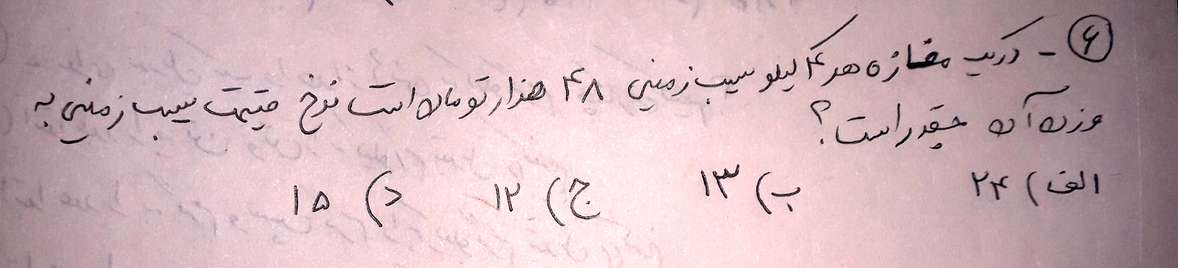 ۶ - در یک مغازه هر ۴ کیلو سیب زمینی ۴۸ هزار تومان است نرخ قیمت سیب زمینی به
وزن آن چقدر است؟
الف) ۲۴ ب) ۱۳ ج) ۱۲ د) ۱۵